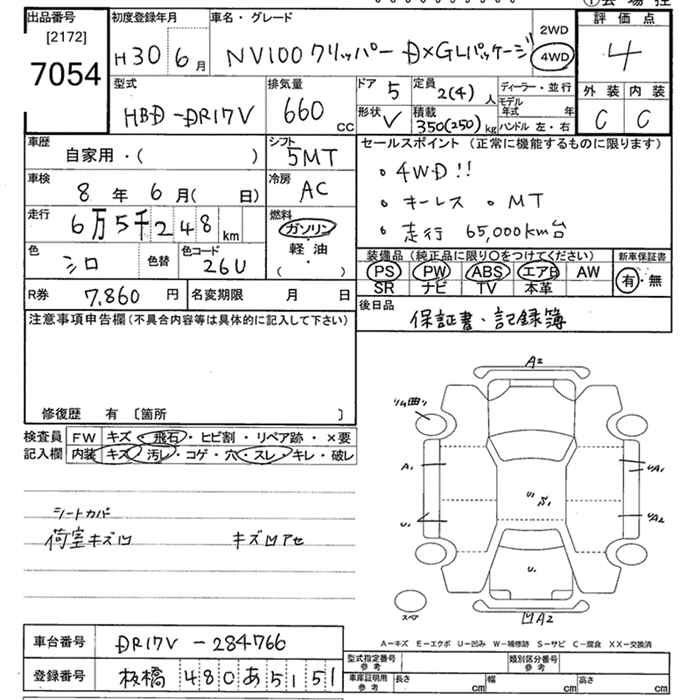 出品番号 [2172] 7054
初度登録年月 H30 6月
車名・グレード NV100 クリッパー DXGLパッケージ
2WD 4WD
評価点 4
外装 C 内装 C
型式 HBD-DR17V
排気量 660 CC
ドア 5 定員 2(4) 人
形状 V 積載 350(250) kg
ディーラー・並行
モデル年式 年
ハンドル 左・右
車歴 自家用・( )
シフト 5MT
車検 8年 6月( 日)
冷房 AC
走行 6万5千248 km
燃料 ガソリン・軽油・( )
色 シロ 色替 色コード 26U
R券 7,860 円 名変期限 月 日
セールスポイント (正常に機能するものに限ります)
・4WD!!
・キーレス ・MT
・走行 65,000km台
装備品 (純正品に限り○をつけてください) 新車保証書
PS PW ABS エアB AW 有・無
SR ナビ TV 本革
後日品 保証書・記録簿
注意事項申告欄 (不具合内容等は具体的に記入して下さい)
修復歴 有 〔箇所 〕
検査員記入欄
FW キズ・飛石・ヒビ割・リペア跡・×要
内装 キズ・汚レ・コゲ・穴・スレ・キレ・破レ
シートカバー
荷室キズ凹 キズ凹アセ
A2
リム曲り
A1
U1
スペア
凹A2
A-キズ E-エクボ U-凹み W-補修跡 S-サビ C-腐食 XX-交換済
車台番号 DR17V-284766
登録番号 板橋 480 あ 5151
型式指定番号 参考 類別区分番号 参考
車庫証明用 参考 長さ cm 幅 cm 高さ cm